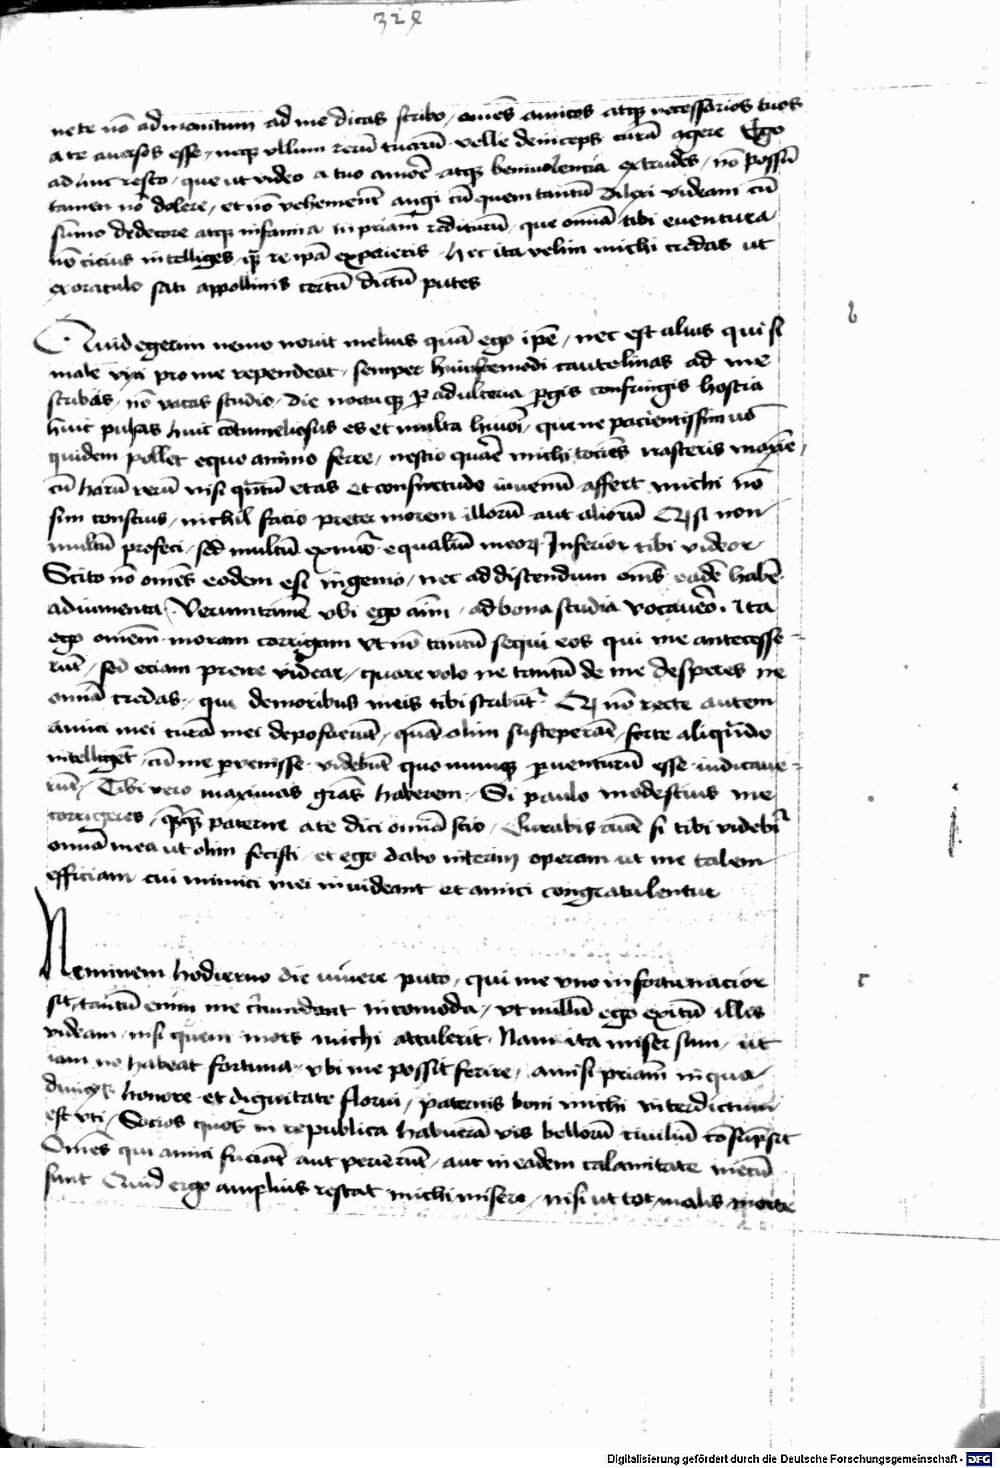 328
ne te nō admonitum ad me dicas scribo / om̄es amicos atqꝫ necessarios tuos
a te auersos esse / neqꝫ vllam rerū tuarū velle deinceps curā agere Ego
adhuc resto / que ut video a tuo amore atqꝫ beniuolencia extrudes / nō possū
tamen nō dolere / et nō vehementer angi cū quem tantū dilexi videam cū
sūmo dedecore atqꝫ infamia in priam rediturū / que omīa tibi euentura
nō cicius intelliges qꝫ re ipā experieris hec ita velim michi credas ut
ex oraculo sati appollinis certū dictū putes
Quid egerim nemo nouit melius quā ego ipē / nec est alius qui si
male vixi pro me rependeat / semper huiuscemodi cautelinas ad me
scribas / nō vacas studio / die noctuqꝫ ꝑ adulteria ꝑgis confringis hostia
hunc pulsas huic cōtumeliosus es et multa huiōi / que ne pacientissimus
quidem posset equo animo ferre / nescio quare michi tociēs rasteris maxīe /
cū harū rerū nisi qntū etas et consuetudo iuuenū affert michi nō
sim conscius / nichil facio preter morem illorū aut aliorū Qd si non
multū profeci / sed multū ex mīo equaliū meoꝝ Inferior tibi videor
Scito nō om̄es eodem esse ingenio / nec ad discendum om̄s eadē habē
adiumenta Verumtamē vbi ego aīm ad bona studia vocauero. Ita
ego omēm moram corrigam vt nō tantū sequi eos qui me antecesse-
rūt / sed eciam preire videar / quare volo ne tantū de me desperes ne
omīa credas / que de moribus meis tibi scribūtʳ Qd nō recte autem
amici mei curā mei deposuerūt / quā olim susceperāt / forte aliqn̄do
intelligēt cū me peruenisse videbūt quo numqꝫ ꝑuenturū esse iudicaue-
rūt / Tibi vero maximas grās haberem Si paulo modestius me
corrigeres / qꝫqꝫ paterne a te dici omīa scio / Curabis autē si tibi videbiʳ
omīa mea ut olim fecisti et ego dabo interim operam ut me talem
efficiam cui inimici mei inuideant et amici congratulentur
Neminem hodierno die viuere puto / qui me vno infortunacior
sit / tantū enim me c̄umdant incomoda / vt nullū ego exitū illis
videam / nisi quem mors michi attulerit Nam ita miser sum ut
iam nō habeat fortuna / vbi me possit ferire / amisi priam in qua
diucius honore et dignitate florui / paternis boni michi interdictum
est vti / Socios quos in republica habueram vis bellorū ciuiliū cōsumpsit
Om̄es qui amici fuerāt aut perierūt / aut in eadem calamitate mecū
sunt Quid ergo amplius restat michi misero / nisi ut tot malis morte
Digitalisierung gefördert durch die Deutsche Forschungsgemeinschaft - DFG